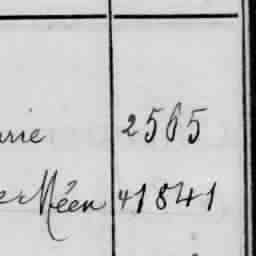 2565
Méen 41841